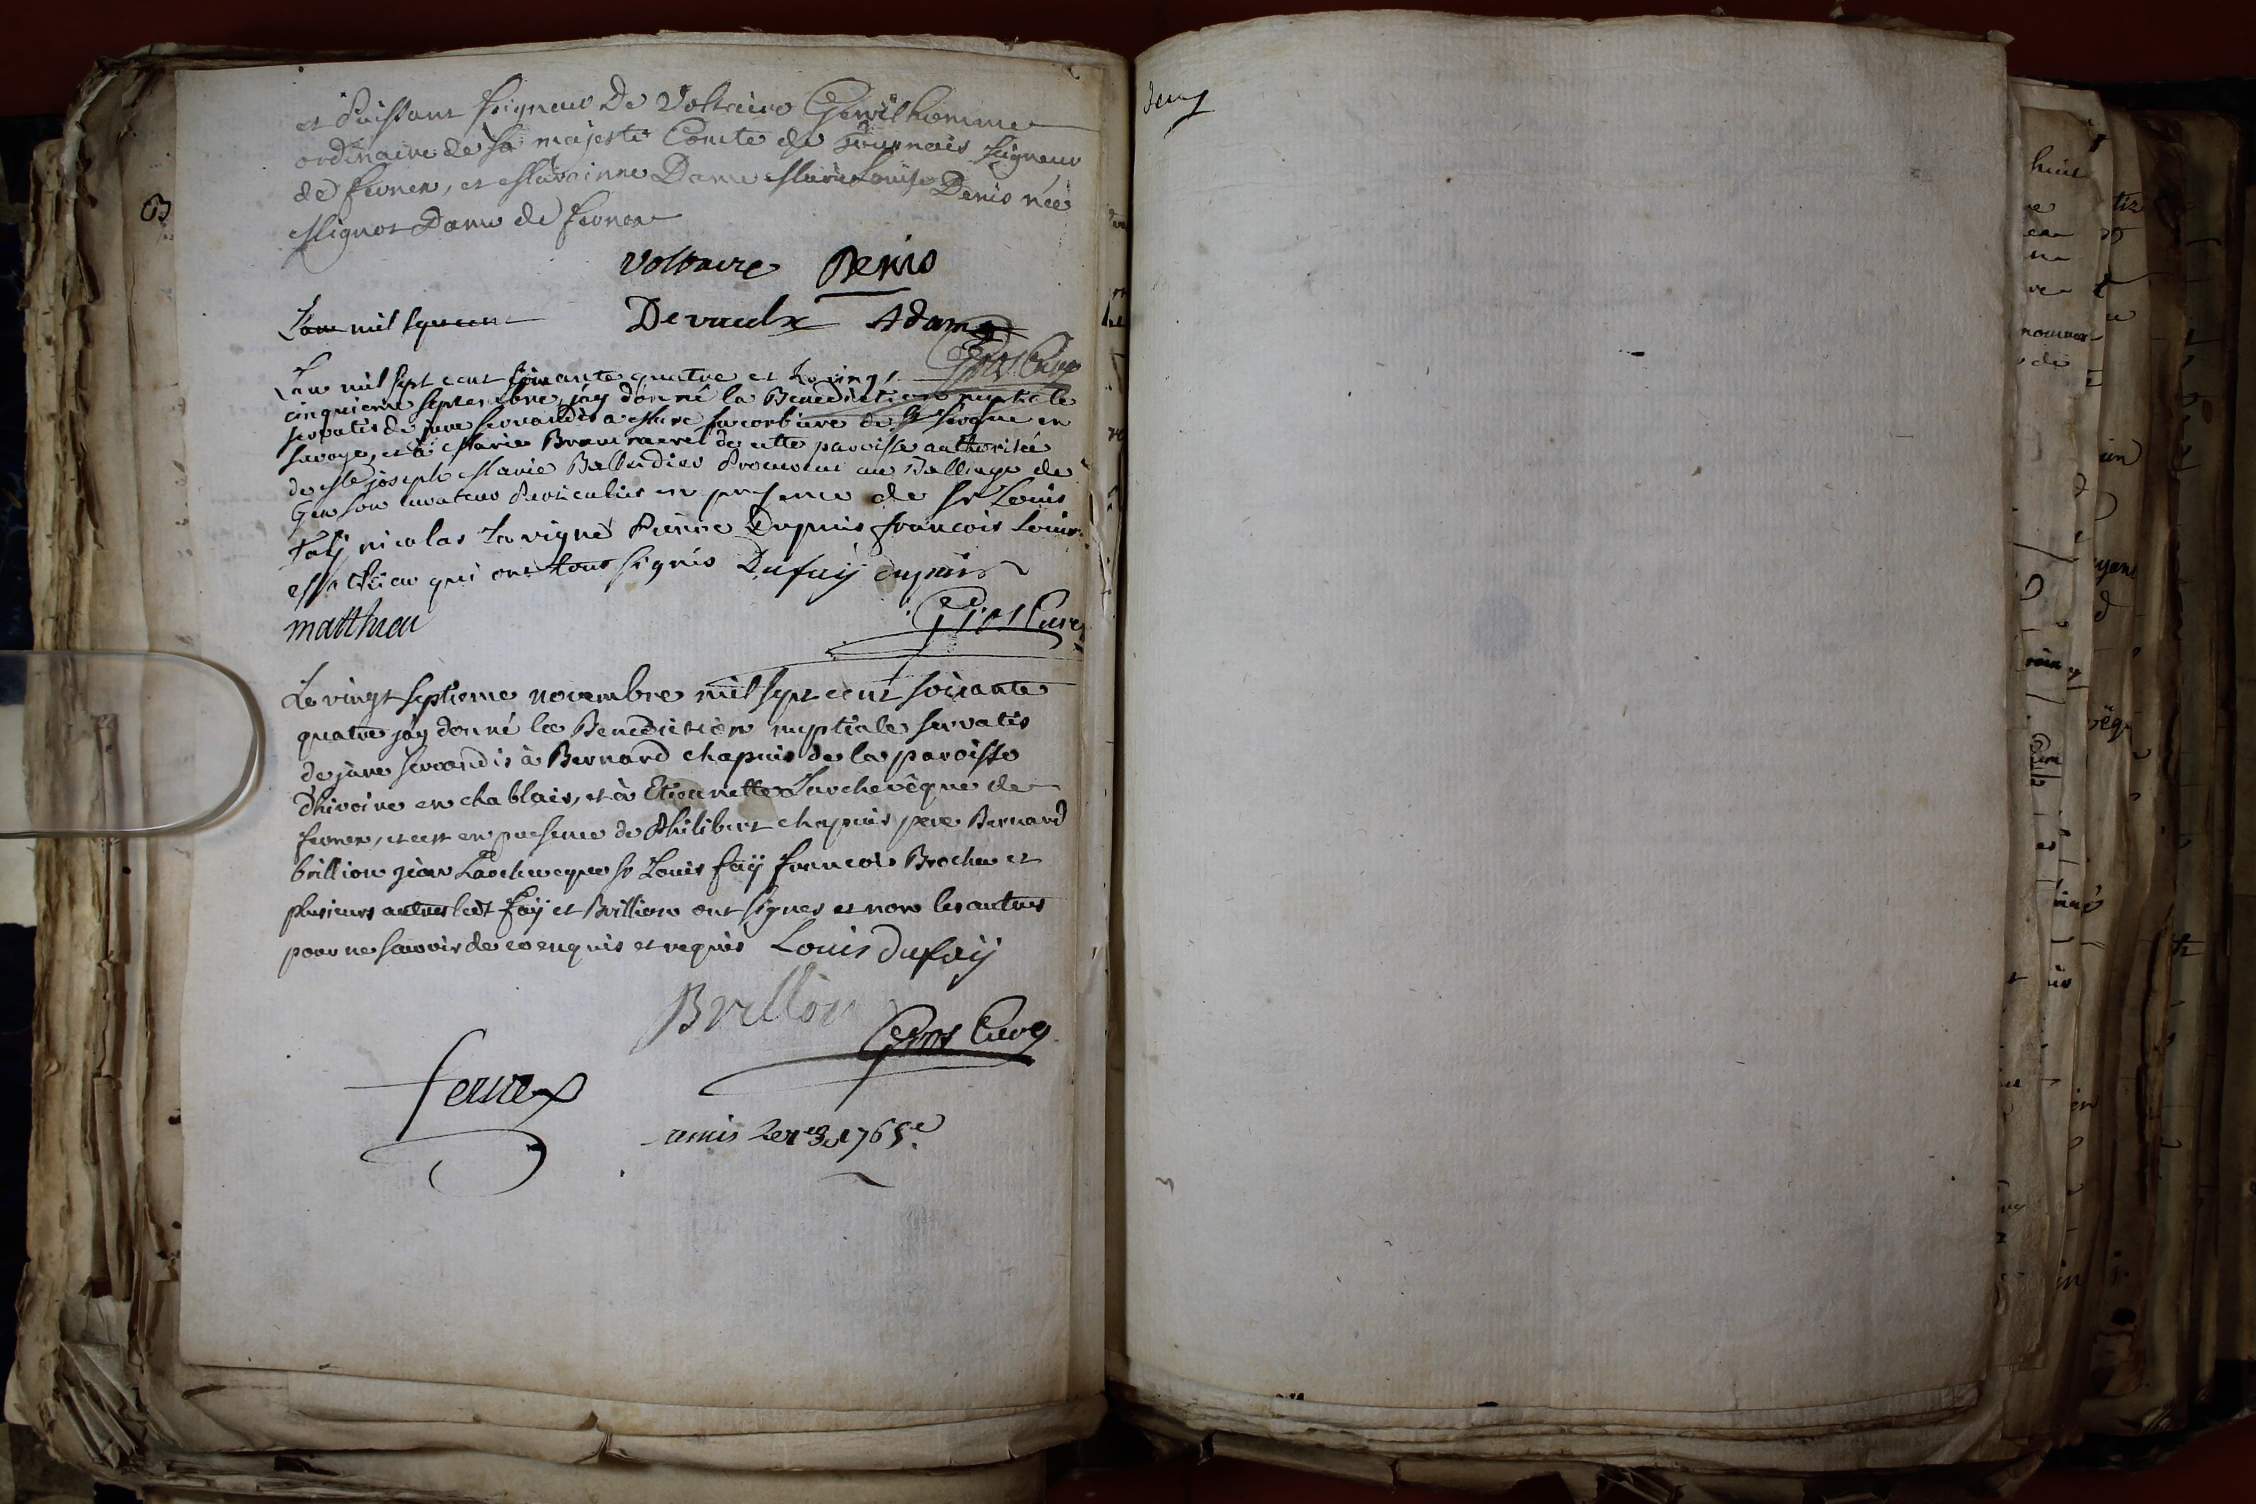 et Puissant seigneur De Voltaire Gentilhomme
ordinaire de Sa majesté Comte de Tournais seigneur
de fernex, et Marainne Dame Marie Louise Denis née
Mignot Dame de fernex
Voltaire Denis
L'an mil sept cent
Devaulx Adam
Gros Curé
L'an mil sept cent soixante quatre et le vingt
cinquieme septembre j'ay donné la Benediction nuptiale
servatis de jure servandis à Marc en
Savoye, et à Marie de cette paroisse authorisée
de Me joseph Marie Balleidier Procureur au Balliage de
Gex son curateur Particulier en presence de Sr Louis
Faÿ nicolas Lavigne Pierre Dupuis francois Louis
Mathieu qui ont tous signés Dufaÿ dupuis
matthieu
Gros Curé
Le vingt septieme novembre mil sept cent soixante
quatre j'ay donné la Benediction nuptiale servatis
de jure servandis à Bernard chapuis de la paroisse
d'hivoire en chablais, et à Etiennette Larchevêque de
fernex, et cest en presence de Philibert chapuis pere Bernard
brillion jean Larcheveque Sr Louis faÿ francois Brochu et
plusieurs autres led't Faÿ et Brillion ont signes et non les autres
pour ne scavoir de ce enquis et requis Louis dufaÿ
Brillon
Gros Curé
fernex
1765